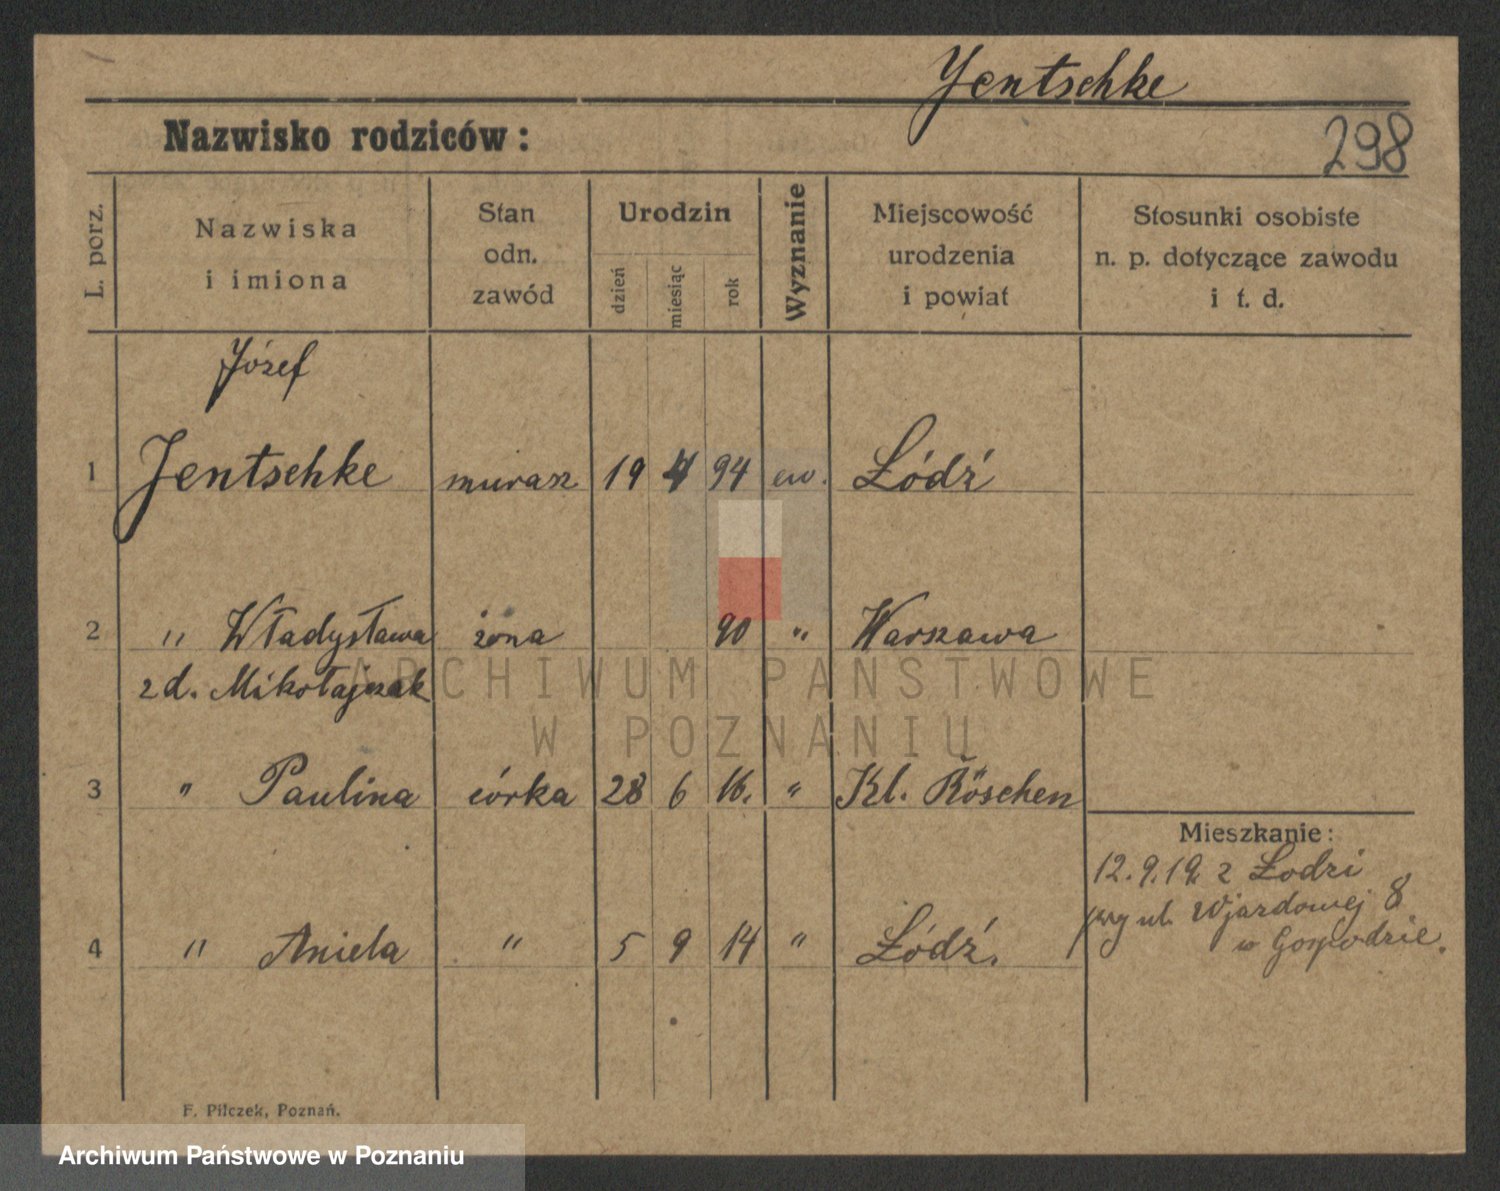 Jentschke
Nazwisko rodziców:
298
L. porz.
Nazwiska
i imiona
Stan
odn.
zawód
Urodzin
dzień
miesiąc
rok
Wyznanie
Miejscowość
urodzenia
i powiat
Stosunki osobiste
n. p. dotyczące zawodu
i t. d.
Józef
1 Jentschke murarz 19 4 94 ew. Łódź
2 " Władysława żona 90 " Warszawa
z d. Mikołajczak
ARCHIWUM PAŃSTWOWE
W POZNANIU
3 " Paulina córka 28 6 16. " Kl. Röschen
Mieszkanie:
12.9.19 z Łodzi
przy ul. Wjazdowej 8
w Gospodzie.
4 " Aniela " 5 9 14 " Łódź.
F. Pilczek, Poznań.
Archiwum Państwowe w Poznaniu